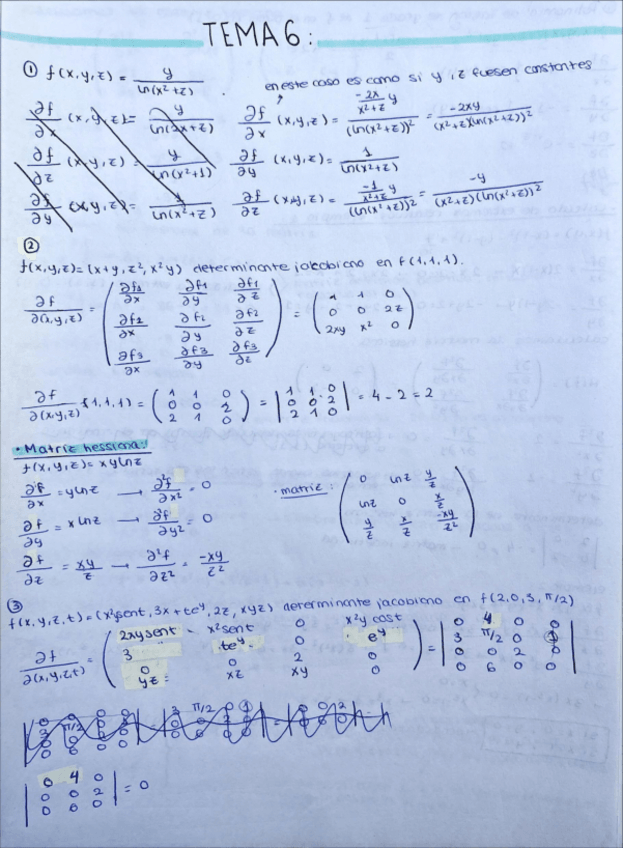 TEMA 6:
① f(x,y,z) = y / ln(x²+z) . en este caso es como si y, z fuesen constantes
∂f/∂x (x,y,z) = y / ln(2x+z) ∂f/∂x (x,y,z) = (-2x/(x²+z) y) / (ln(x²+z))² = -2xy / (x²+z)(ln(x²+z))²
∂f/∂z (x,y,z) = y / ln(x²+1) ∂f/∂y (x,y,z) = 1 / ln(x²+z)
∂f/∂y (x,y,z) = 1 / ln(x²+z) ∂f/∂z (x,y,z) = (-1/(x²+z) y) / (ln(x²+z))² = -y / (x²+z)(ln(x²+z))²
②
f(x,y,z) = (x+y, z², x²y) determinante jacobiano en f(1,1,1).
∂f/∂(x,y,z) = ( ∂f1/∂x ∂f1/∂y ∂f1/∂z
∂f2/∂x ∂f2/∂y ∂f2/∂z
∂f3/∂x ∂f3/∂y ∂f3/∂z ) = ( 1 1 0
0 0 2z
2xy x² 0 )
∂f/∂(x,y,z) f(1,1,1) = ( 1 1 0
0 0 2
2 1 0 ) = | 1 1 0
0 0 2
2 1 0 | = 4 - 2 = 2
· Matriz hessiana:
f(x,y,z) = xy ln z
∂f/∂x = y ln z → ∂²f/∂x² = 0 · matriz: ( 0 ln z y/z
∂f/∂y = x ln z → ∂²f/∂y² = 0 ln z 0 x/z
∂f/∂z = xy/z → ∂²f/∂z² = -xy/z² y/z x/z -xy/z² )
③
f(x,y,z,t) = (x²y sent, 3x + te^y, 2z, xyz) determinante jacobiano en f(2,0,3,π/2)
∂f/∂(x,y,z,t) = ( 2xysent x²sent 0 x²y cost
3 te^y 0 e^y
0 0 2 0
yz xz xy 0 ) = | 0 4 0 0
3 π/2 0 1
0 0 2 0
0 6 0 0 |
| 0 4 0
0 0 2
0 0 0 | = 0